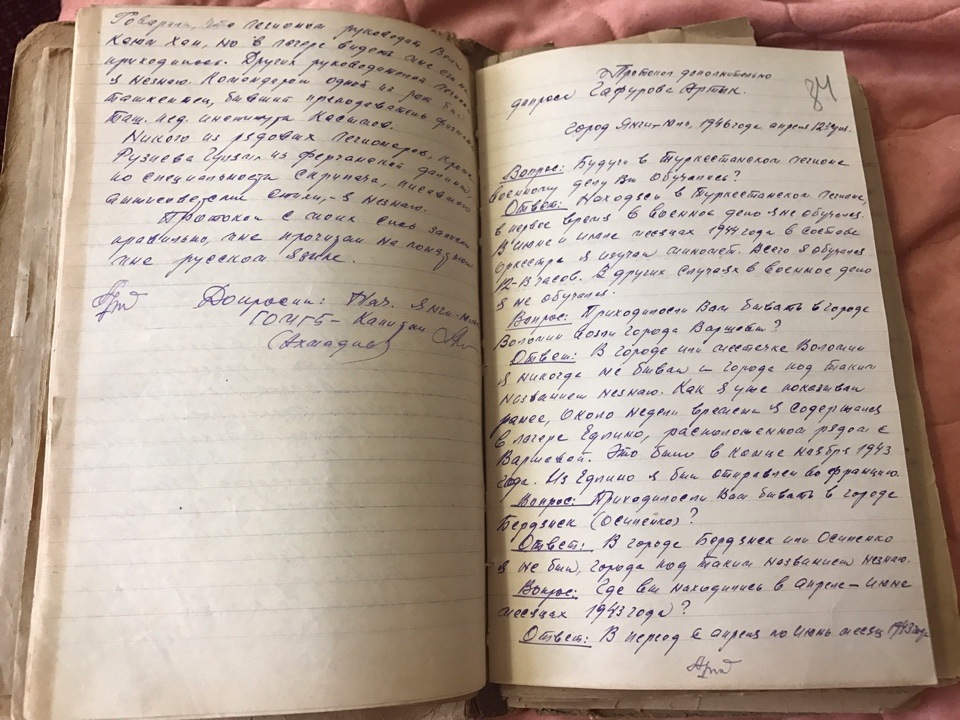 Говорили, что легионом руководит Вели
Каюм Хан, но в лагере видеть мне его не
приходилось. Других руководителей легиона
я незнаю. Командером одной из рот был
ташкентец, бывший преподаватель физики
таш. пед. института Касымов.
Никого из рядовых легионеров, кроме
Рузиева Гулзал из ферганской долины,
по специальности скрипача, писавшего
антисоветские стихи, - я незнаю.
Протокол с моих слов записан
правильно, мне прочитан на понятном
мне русском языке.
Допросил: Нач. Янги-Юль
ГОМГБ - Капитан
(Ахмадиев)
84
Протокол дополнительно
допроса Гафурова Артык.
город Янги-Юль, 1946 года апреля 12 дня.
Вопрос: Будучи в Туркестанском легионе
военному делу Вы обучались?
Ответ: Находясь в Туркестанском легионе,
в первое время в военное дело я не обучался.
В июне и июле месяцах 1944 года в составе
оркестра я изучал миномет. Всего я обучался
12-13 часов. В других случаях в военное дело
я не обучался.
Вопрос: Приходилось Вам бывать в городе
Воломин возле города Варшавы?
Ответ: В городе или местечке Воломин
я никогда не бывал и города под таким
названием незнаю. Как я уже показывал
ранее, около недели времени я содержался
в лагере Едлино, расположенном рядом с
Варшавой. Это было в конце ноября 1943
года. Из Едлино я был отправлен во францию.
Вопрос: Приходилось Вам бывать в городе
Бердянск (Осипенко)?
Ответ: В городе Бердянск или Осипенко
я не был, города под таким названием незнаю.
Вопрос: Где вы находились в апреле - июне
месяцах 1943 года?
Ответ: В период с апреля по июнь месяц 1943 года